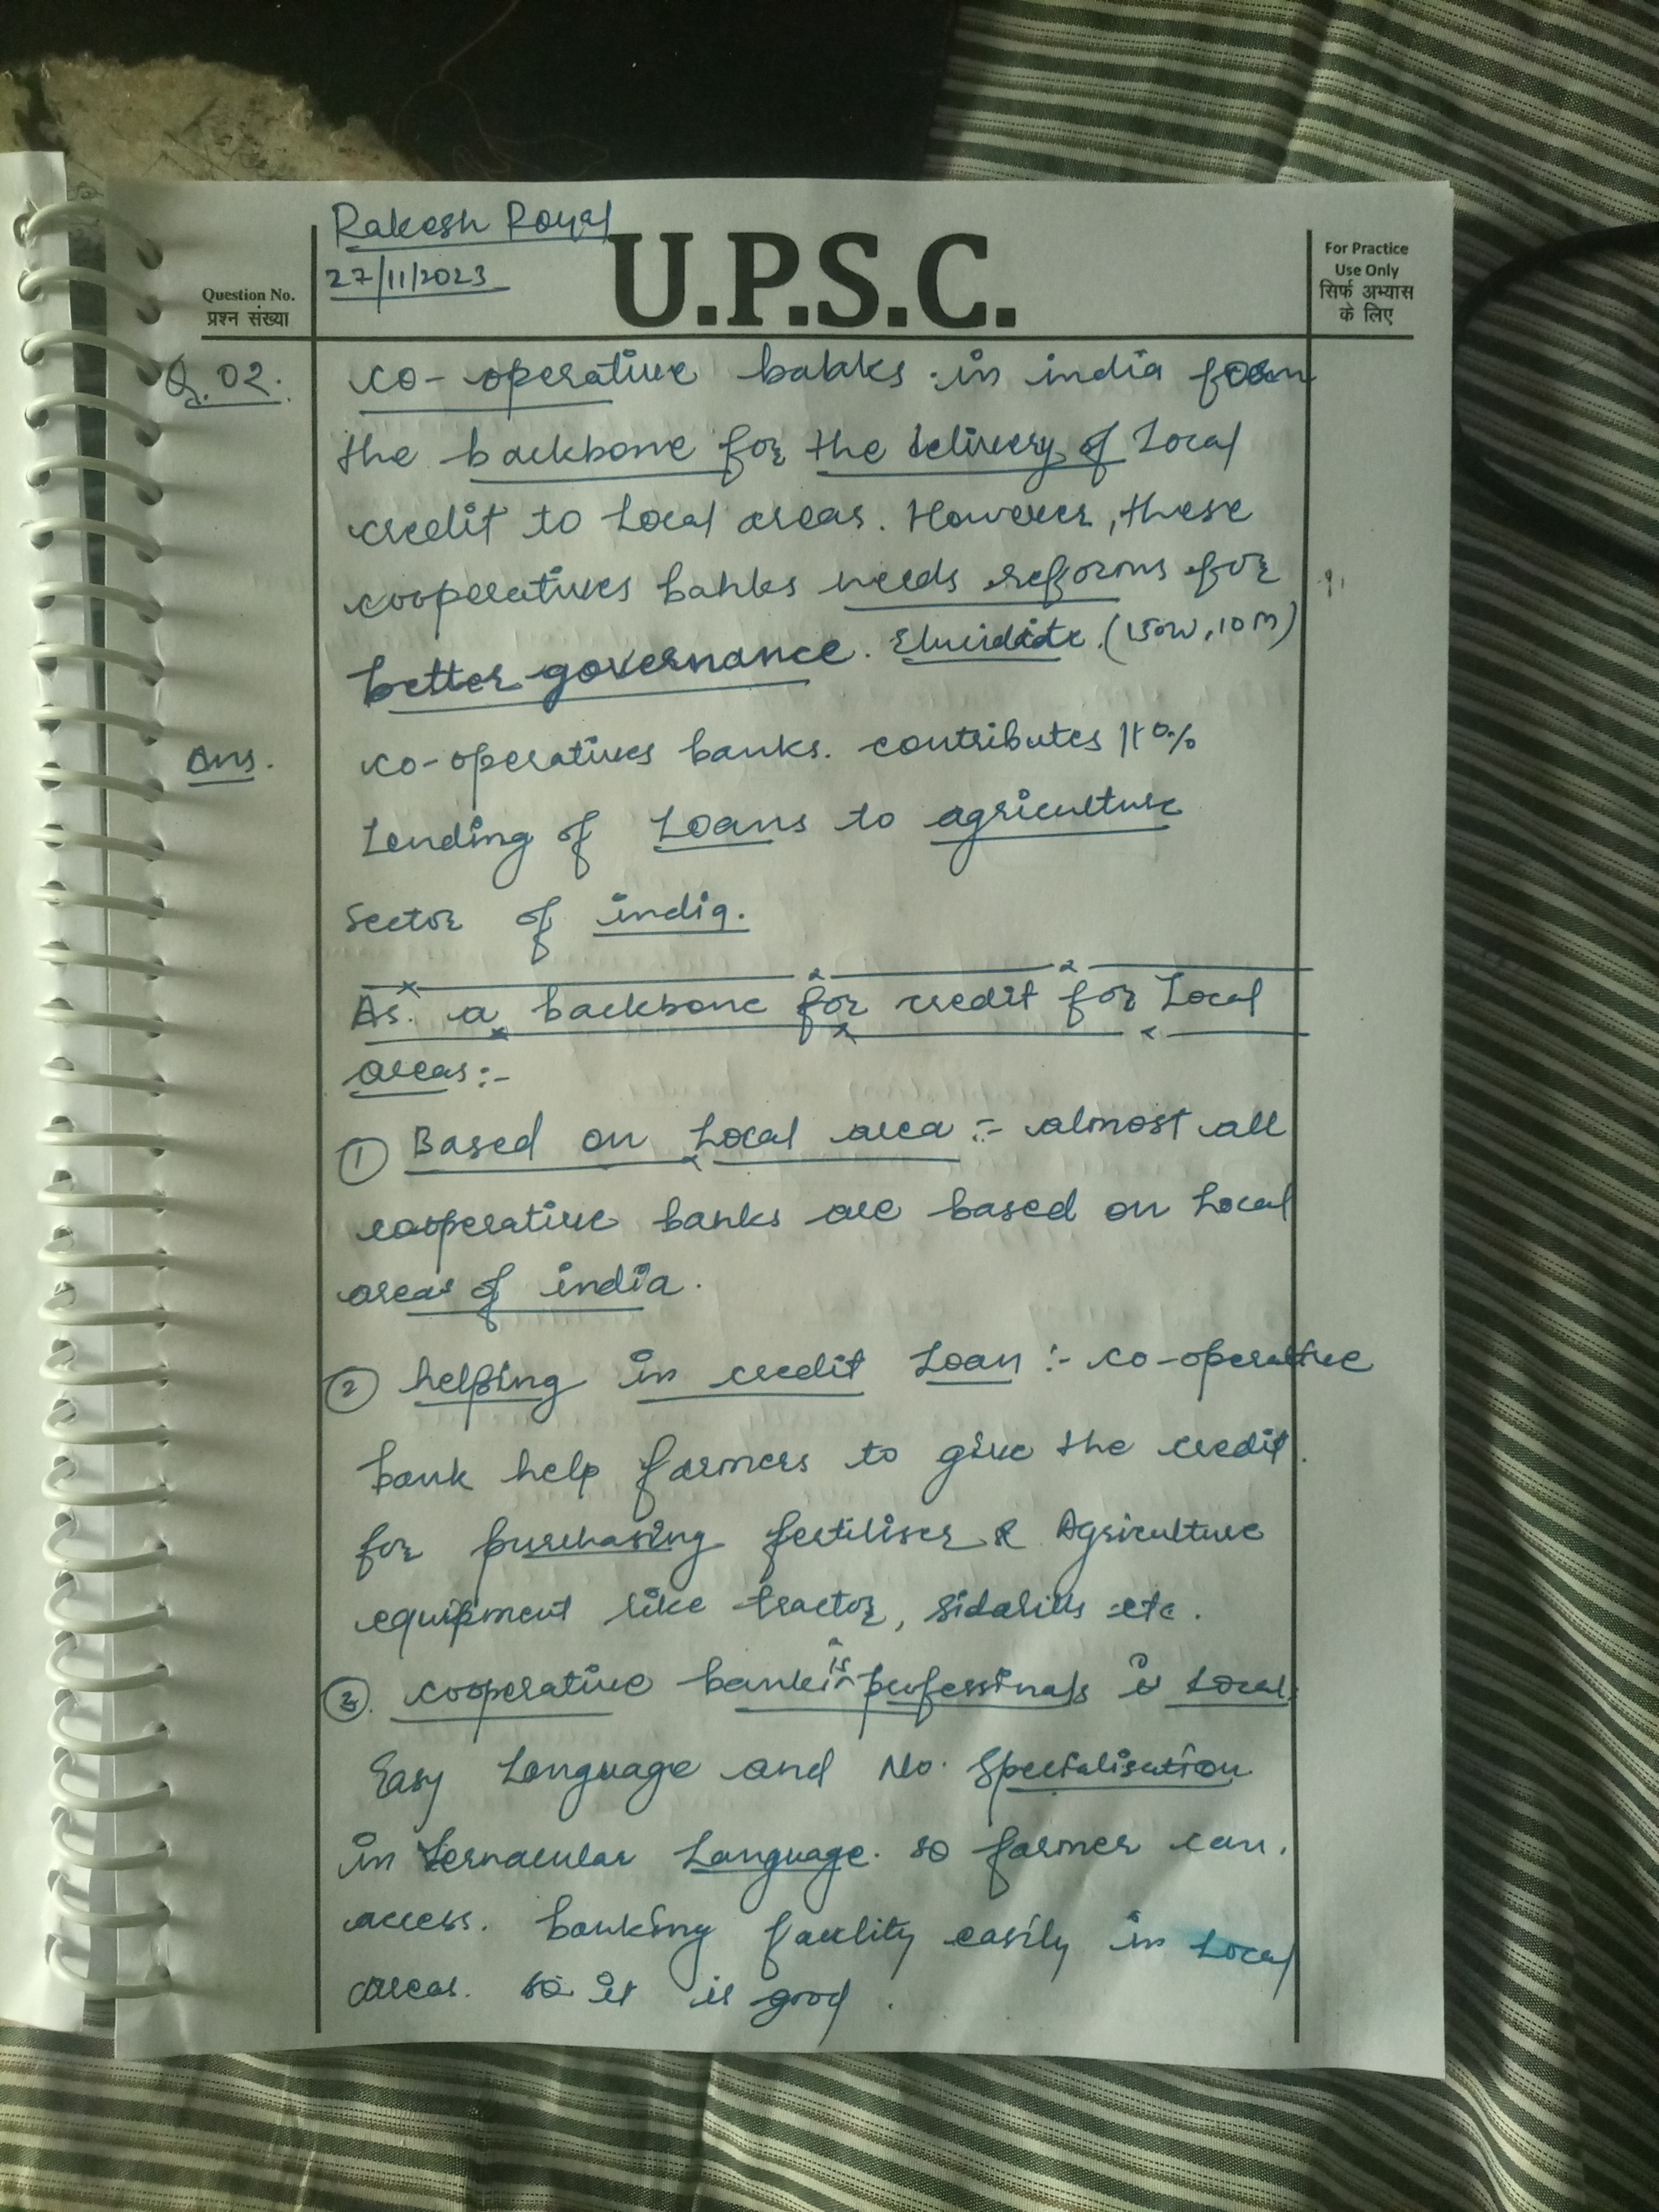 Rakesh Royal
27/11/2023
U.P.S.C.
Question No.
प्रश्न संख्या
For Practice
Use Only
सिर्फ अभ्यास
के लिए
Q. 02. co-operative banks in india form
the backbone for the delivery of Local
credit to Local areas. However, these
cooperatives banks needs reforms for
better governance. Elucidate. (150W, 10M)
Ans. co-operatives banks. contributes
Lending of Loans to agriculture
Sector of india.
As. a backbone for credit for Local
areas:-
① Based on Local area :- almost all
cooperative banks are based on Local
areas of india.
② helping in credit Loan :- co-operative
bank help farmers to give the credit.
for purchasing fertiliser & Agriculture
equipment like tractor, etc.
③. cooperative bank is professinals is Local
Easy Language and No. Specialisation
in vernacular Language. so farmer can.
access. banking facility easily in Local
areas. so it is good.